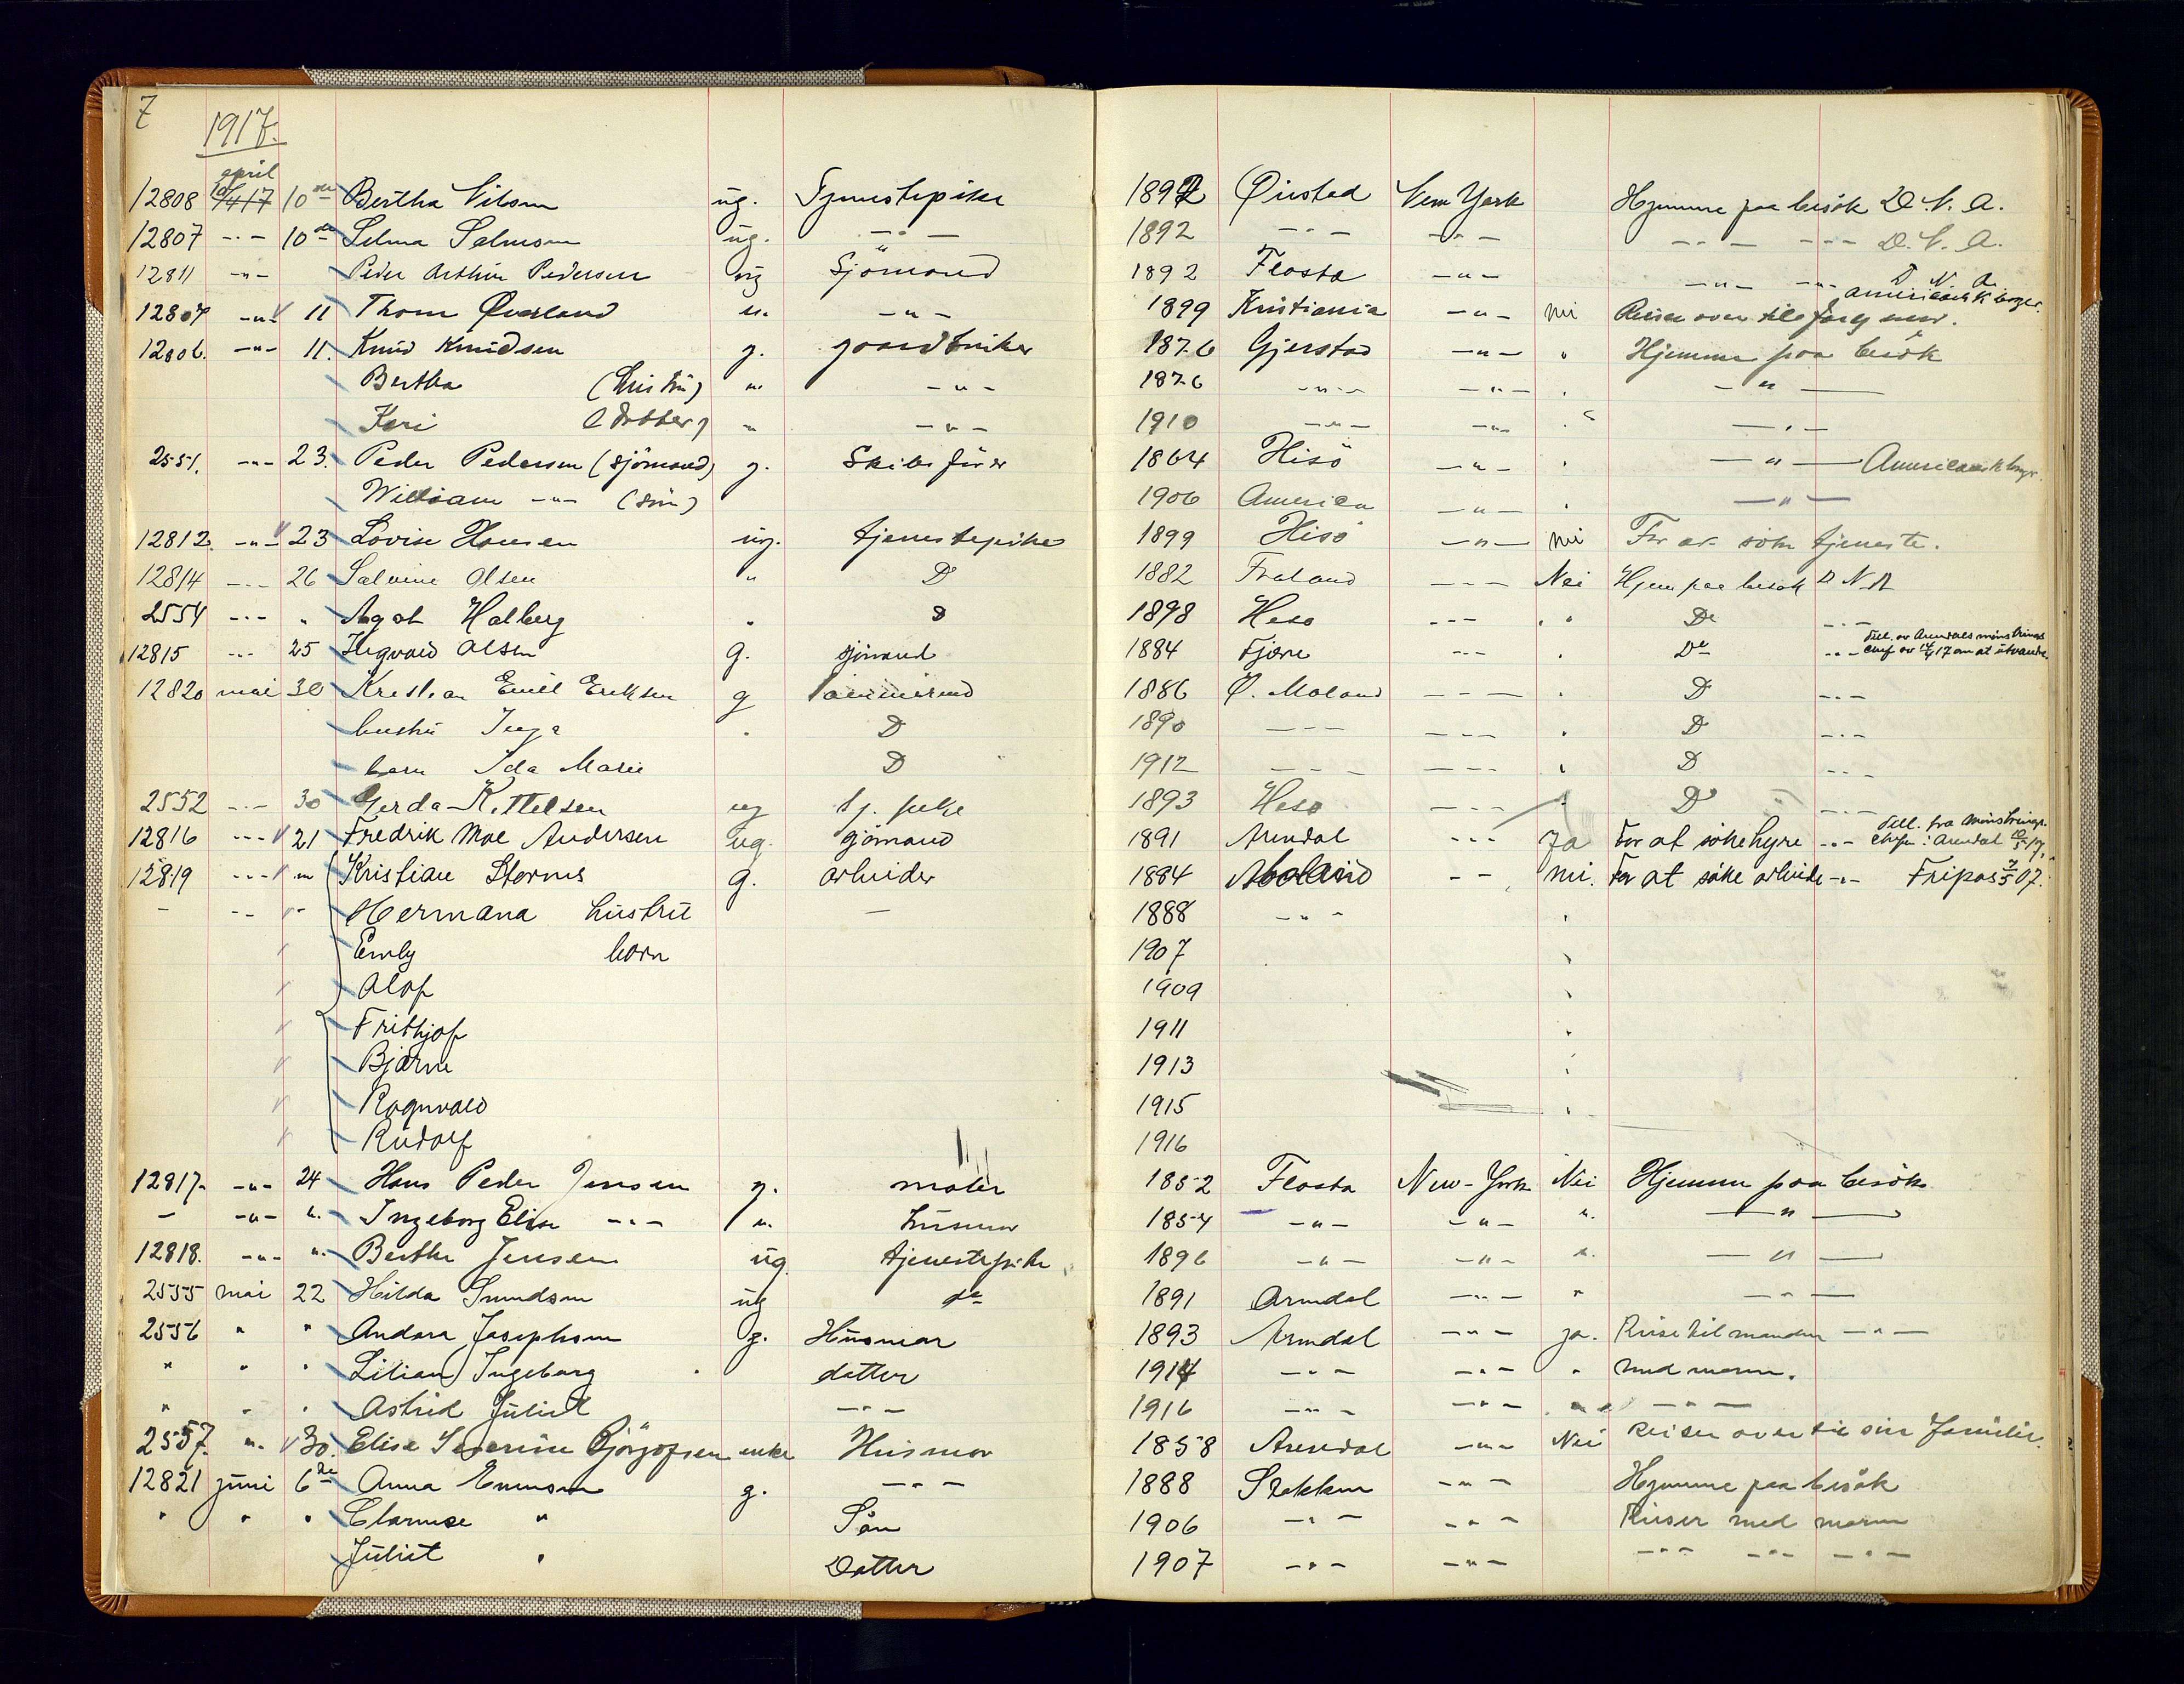 7
1917.
april
12808 10/4 17 10de Bertha Nilsen ug. Tjenestepike 1892 Öiestad New York Hjemme paa besök D. N. A.
12807 -"- 10de Selma Salvesen ug. -"- 1892 -"- -"- -"- -"- D. N. A.
12811 -"- Peder Arthur Pedersen ug Sjömand 1892 Flosta -"- -"- -"- D. N. A. amerikansk borger.
12804 -"- 11 Thom Överland u. -"- 1899 Kristiania -"- nei Reiser over til
12806. -"- 11. Knud Knudsen g. gaardbruker 1876 Gjerstad -"- " Hjemme paa besök
Bertha (hustru) " -"- 1876 -"- -"- " -"-
Kari (datter) " -"- 1910 -"- -"- " -"-
2551. -"- 23. Peder Pedersen (sjömand) g. Skibsförer 1864 Hisö -"- " -"- Amerikansk borger
William -"- (sön) 1906 America -"- " -"-
12812. -"- 23 Lovise Hansen ug. tjenestepike 1899 Hisö -"- nei For at söke tjeneste.
12814 -"- 26 Salvine Olsen " D 1882 Froland -"- Nei Hjem paa besök D N A
2554 -"- " Agot Halberg " D 1898 Hisö -"- " Do -"-
12815 -"- 25 Ingvald Olsen g. sjömand 1884 Fjære -"- " Do -"- Till. av Arendals mönstrings chef av 14/4 17 om at utvandre
12820 mai 30 Kristian Emil Eriksen g tømmermand 1886 Ö. Moland -"- " D -"-
hustru Inga " D 1890 -"- -"- " D -"-
barn Ida Marie D 1912 -"- -"- " D -"-
2552 -"- 30 Gerda Kittelsen ug tj. pike 1893 Hisö -"- " D -"-
12816 -"- 21 Fredrik Moe Andersen ug. sjömand 1891 Arendal -"- Ja For at söke hyre -"- Till. fra Mönstrings chefen i Arendal 17.
12819 -"- " Kristian Storms g. arbeider 1884 Moland -"- nei. For at söke arbeide -"- Fripas 7/5 07.
- -"- " Hermana hustru - 1888 -"- "
Emly barn 1907 "
Olaf 1909 "
Frithjof 1911 "
Bjarne 1913 "
Ragnvald 1915 "
Rudolf 1916
12817- -"- 24 Hans Peder Jensen g. maler 1852 Flosta New-York Nei Hjemme paa besök
- -"- " Ingeborg Elise -"- " husmor 1854 -"- -"- " -"-
12818. -"- " Berthe Jensen ug. tjenestepike 1896 -"- -"- " -"-
2555 mai 22 Hilda Gundsen ug do 1891 Arendal -"- " -"-
2556 " " Andora Josephsen g. Husmor 1893 Arendal -"- ja. Reise til manden -"-
" " " Lilian Ingeborg " datter 1914 -"- -"- " med moren.
" " " Astrid Juliet -"- 1916 -"- -"- " -"-
2557. " 30. Elise Severine Bjögofsen enke Husmor 1858 Arendal -"- Nei Reiser over til sin familie.
12821 juni 6te Anna Evensen g. -"- 1888 Stokken -"- Hjemme paa besök
" " " Clarense " Sön 1906 -"- -"- Reiser med moren
Juliet " Datter 1907 -"- -"- -"- -"- -"-